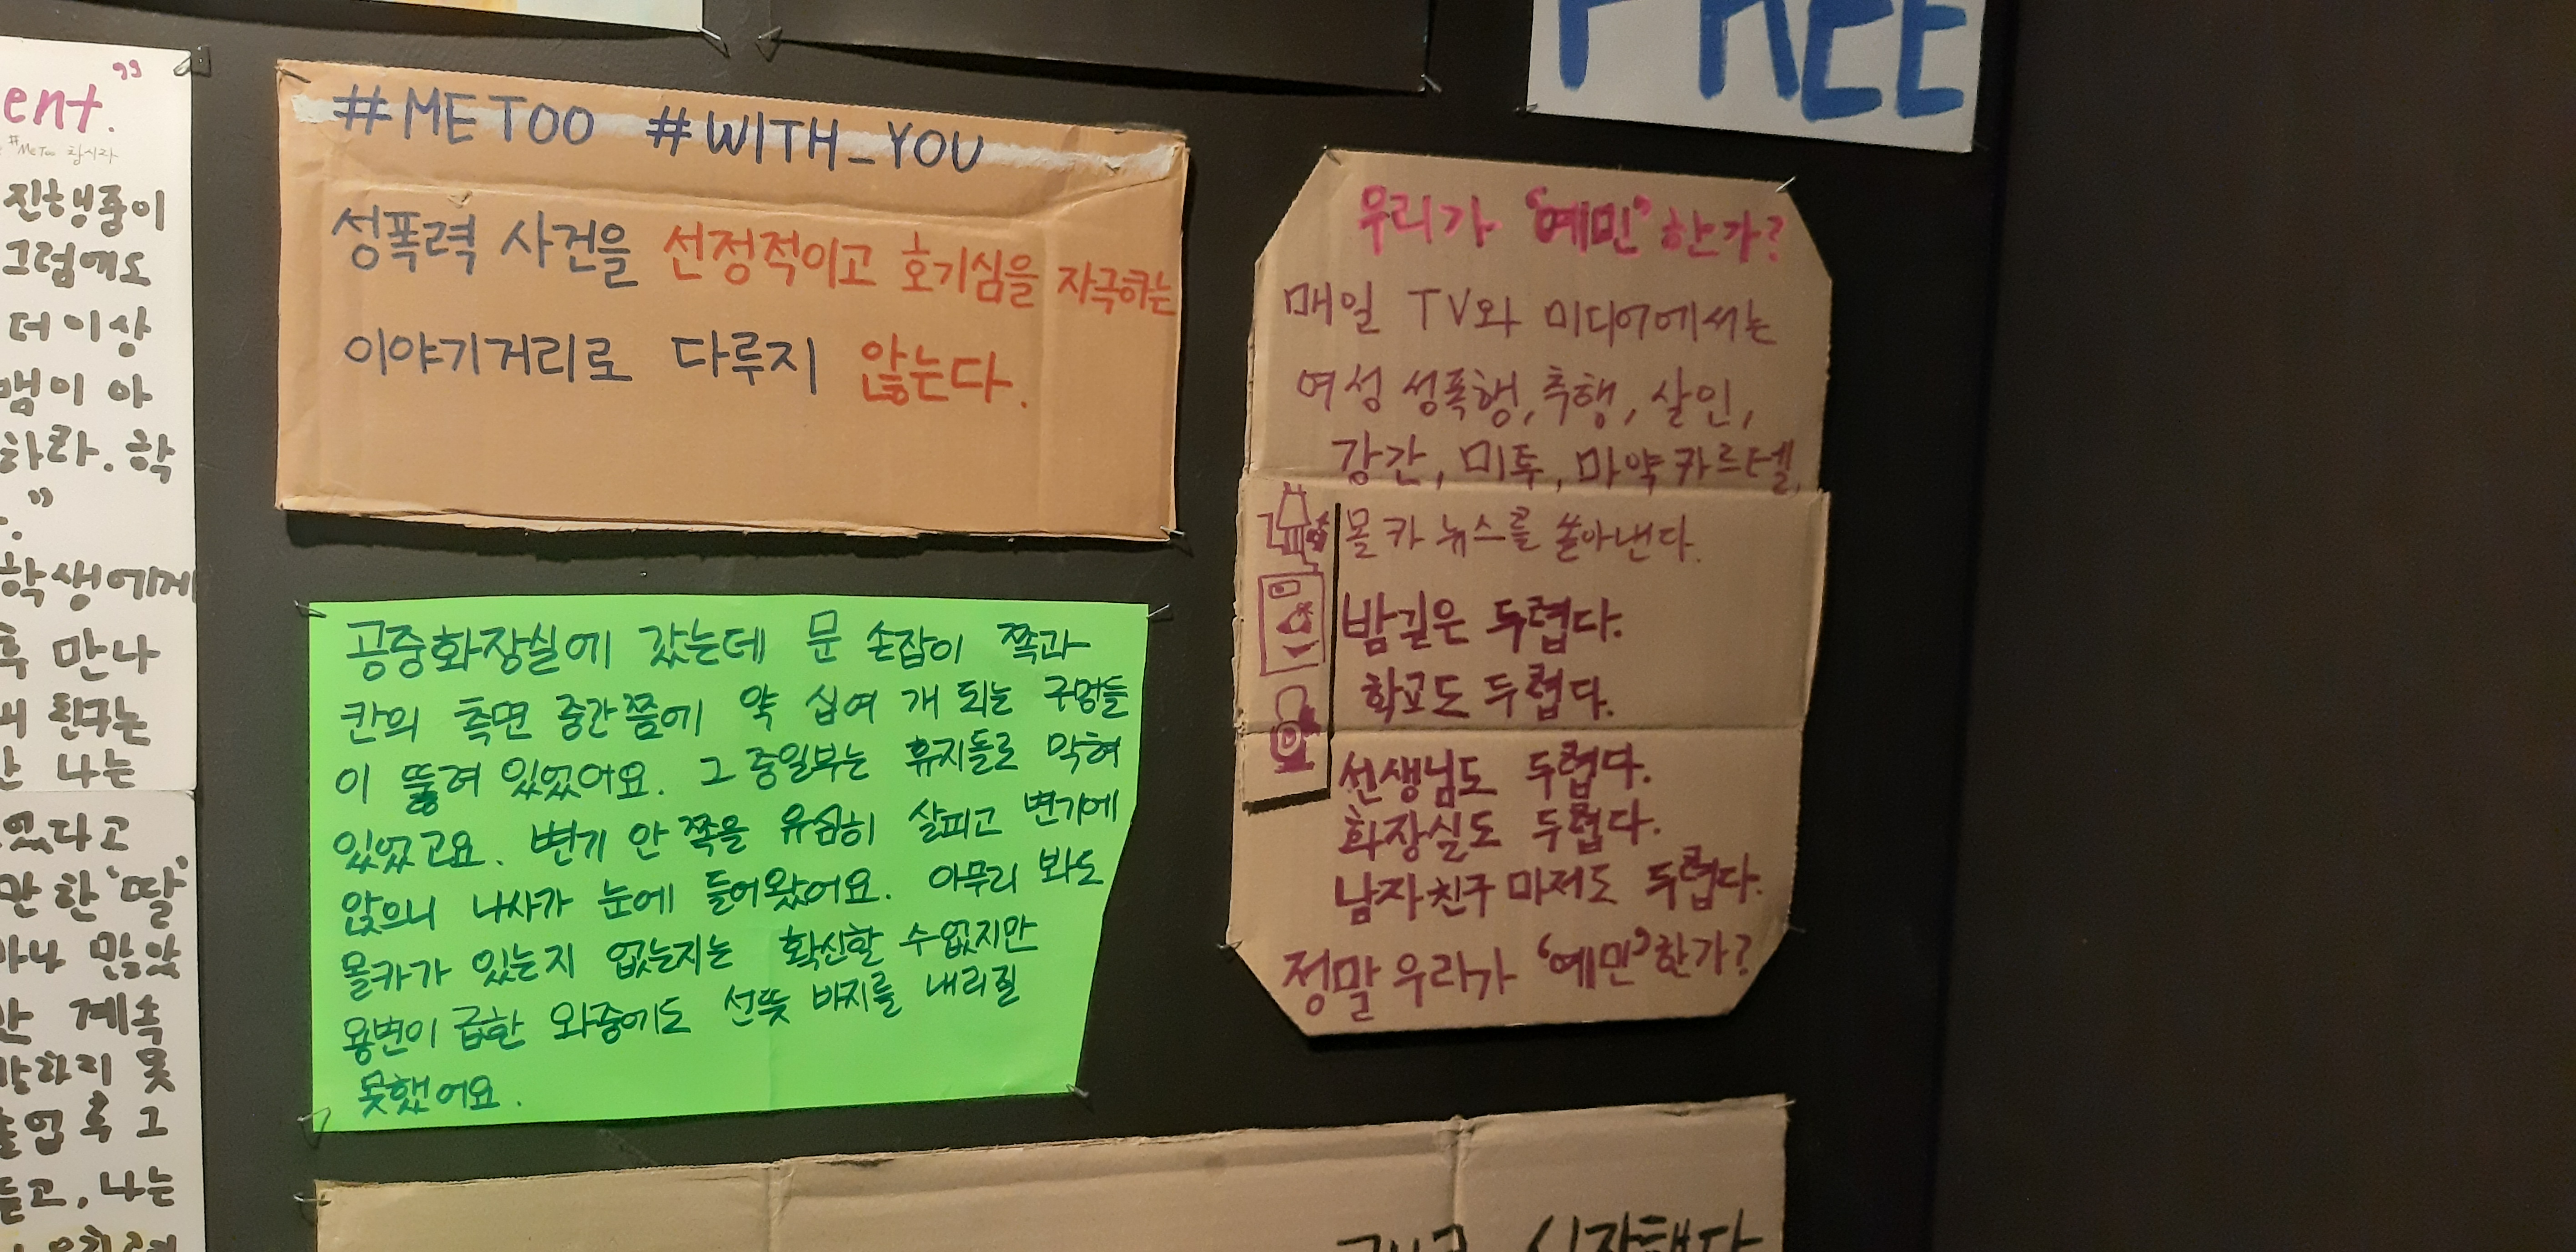 FREE
ent."
#MeToo 참시라
진행중이
그럼에도
더 이상
뱀이 아
하라. 학
."
학생에게
만나
친구는
나는
없다고
만 한 '딸'
계속
못
업 후 그
듣고, 나는
#METOO #WITH_YOU
성폭력 사건을 선정적이고 호기심을 자극하는
이야기거리로 다루지 않는다.
공중화장실에 갔는데 문 손잡이 쪽과
칸의 측면 중간쯤에 약 십여 개 되는 구멍들
이 뚫려 있었어요. 그 중일부는 휴지들로 막혀
있었고요. 변기 안 쪽을 유심히 살피고 변기에
앉으니 나사가 눈에 들어왔어요. 아무리 봐도
몰카가 있는지 없는지는 확신할 수없지만
용변이 급한 와중에도 선뜻 바지를 내리질
못했어요.
우리가 '예민'한가?
매일 TV와 미디어에서는
여성 성폭행, 추행, 살인,
강간, 미투, 마약카르텔,
몰카 뉴스를 쏟아낸다.
밤길은 두렵다.
학교도 두렵다.
선생님도 두렵다.
화장실도 두렵다.
남자친구 마저도 두렵다.
정말 우리가 '예민'한가?
시작했다